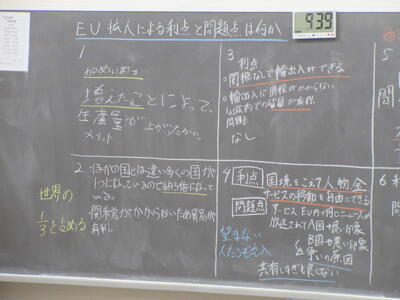 EU拡大による利点と問題点は何か
9:39
1
加盟国が
増えたことによって、
生産量が上がったから。
メリット
2
・ほかの国とは違い多くの国が
1つになっているので
いる。
関税がかからないため貿易が
有利。
世界の
1/3を占める
3
利点
○関税なしで輸出入ができる
○輸出入に関税がかからない
の貿易が有利。
問題点
なし
4
利点
国境をこえて人物金
サービスの移動を自由にできる
問題点
サービス EU内で同じニュースが
放送されてA国悪い印象
B国悪い印象
争いの原因
共有しすぎも良くない
望まない
人たちも
5
6